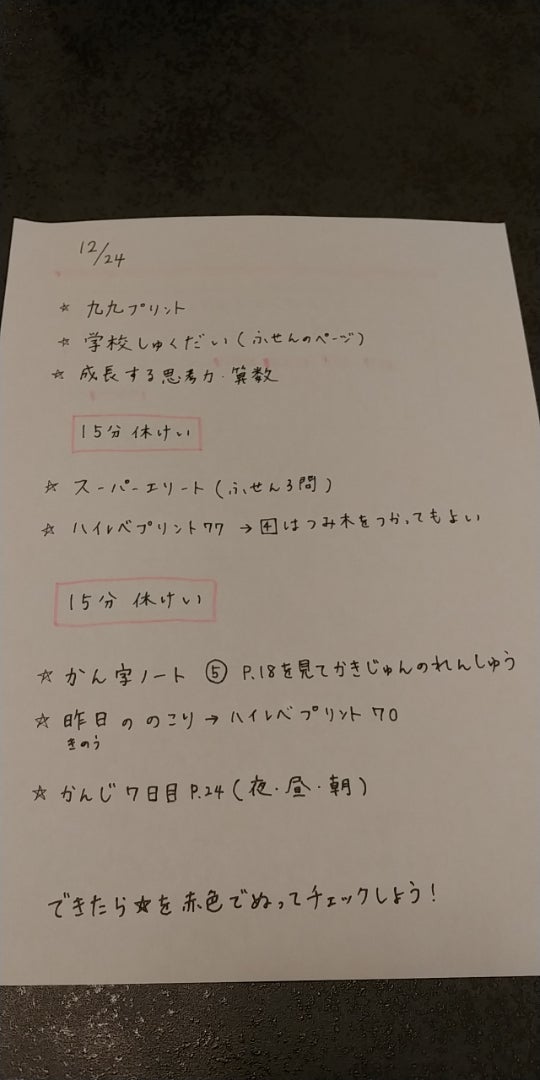 12/24
☆ 九九プリント
☆ 学校しゅくだい(ふせんのページ)
☆ 成長する思考力・算数
15分 休けい
☆ スーパーエリート(ふせん3問)
☆ ハイレベプリント77 → 4はつみ木をつかってもよい
15分 休けい
☆ かん字ノート ⑤ P.18を見てかきじゅんのれんしゅう
☆ 昨日ののこり→ハイレベプリント70
きのう
☆ かんじ7日目P.24(夜・昼・朝)
できたら☆を赤色でぬってチェックしよう!